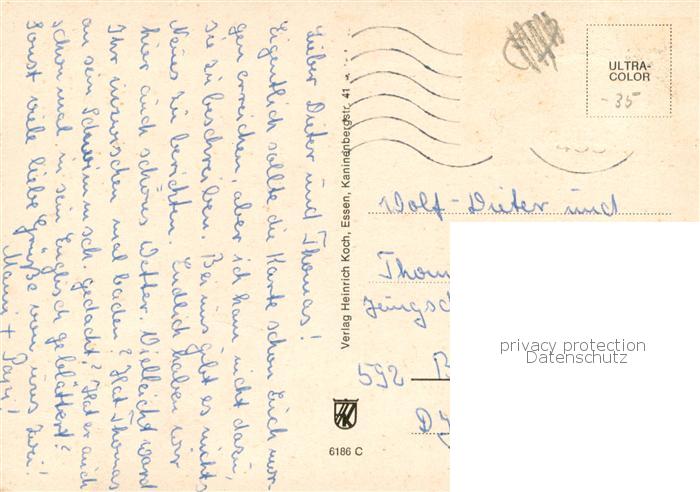 Lieber Dieter und Thomas!
Eigentlich sollte die Karte schon Euch mor-
gen erreichen, aber ich kam nicht dazu,
sie zu beschreiben. Bei uns gibt es nichts
Neues zu berichten. Endlich haben wir
hier auch schönes Wetter. Vielleicht ward
Ihr inzwischen mal baden? Hat Thomas
an sein Schwimmsch. gedacht? Hat er auch
schon mal in sein Englisch geblättert?
Sonst viele liebe Grüße von uns zwei!
Mami + Papi!
Verlag Heinrich Koch, Essen, Kaninenbergstr. 41
6186 C
ULTRA-
COLOR
-35
Wolf-Dieter und
Thom
592 B
privacy protection
Datenschutz